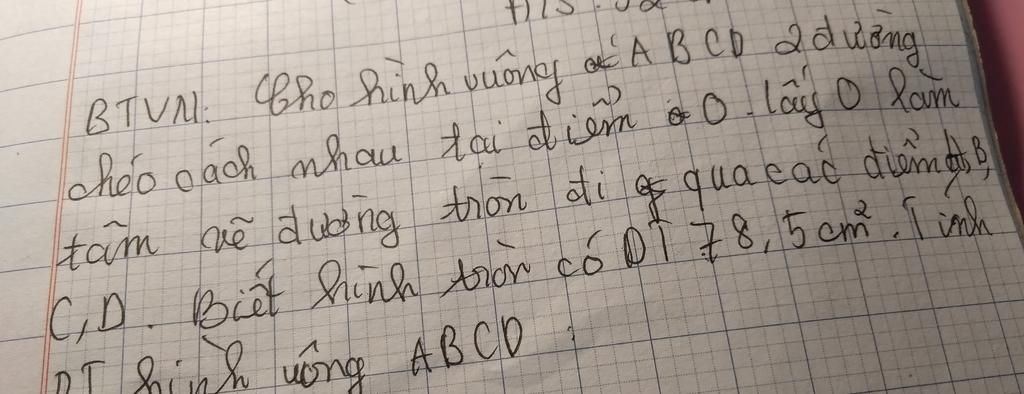 BTVN: Cho hình vuông ABCD 2 đường
chéo cách nhau tại điểm O. lấy O làm
tâm vẽ đường tròn đi qua các điểm A, B,
C, D. Biết hình tròn có DT 78,5 cm². Tính
DT hình vuông ABCD